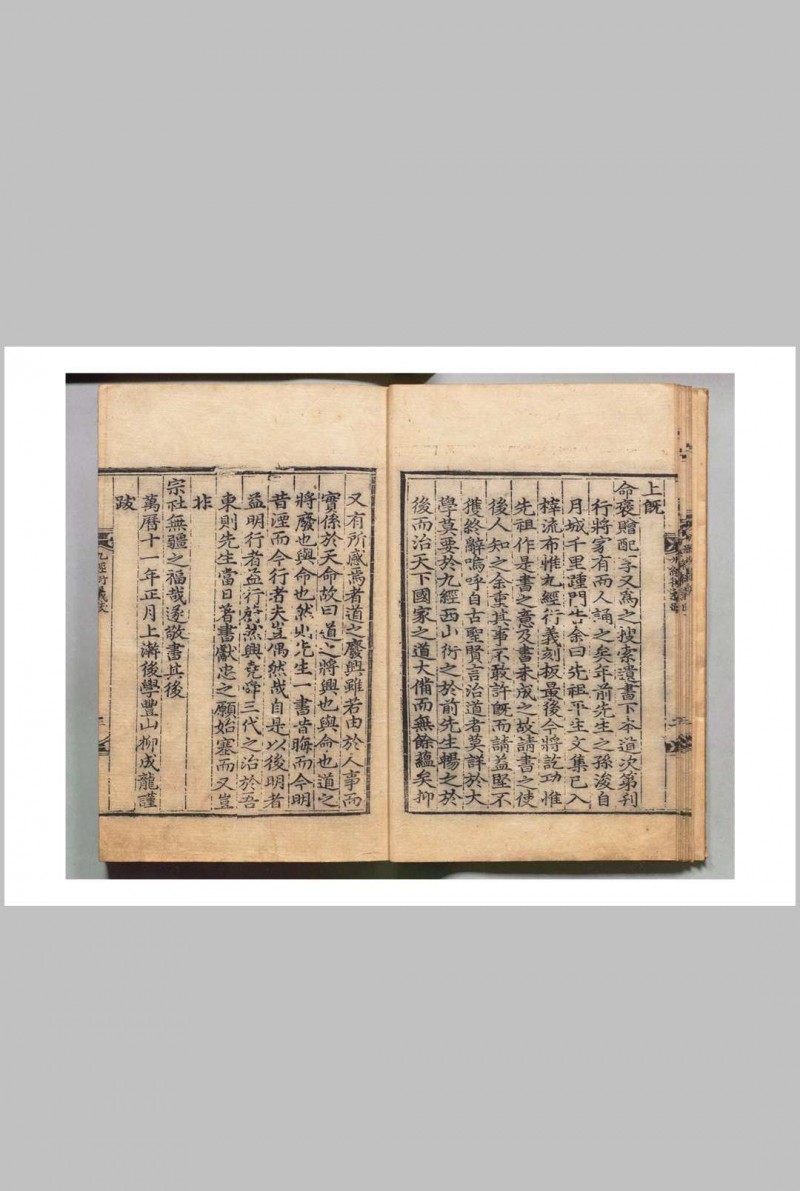 上旣
命褒贈配享又爲之搜索遺書下本道次第刊
行將家有而人誦之矣年前先生之孫浚自
月城千里踵門告余曰先祖平生文集已入
梓流布惟九經衍義刻板最後今將訖功惟
先祖作是書之意及書未成之故請書之使
後人知之余重其事不敢許旣而請益堅不
獲終辭嗚呼自古聖賢言治道者莫詳於大
學莫要於九經西山衍之於前先生暢之於
後而治天下國家之道大備而無餘蘊矣抑
又有所感焉者道之廢興雖若由於人事而
實係於天命故曰道之將興也與命也道之
將廢也與命也然此先生一書昔晦而今明
昔湮而今行者夫豈偶然哉自是以後明者
益明行者益行蔚然興堯舜三代之治於吾
東則先生當日著書獻忠之願始塞而又豈
非
宗社無疆之福哉遂敬書其後
萬曆十一年正月上澣後學豐山柳成龍謹
跋
九經衍義跋